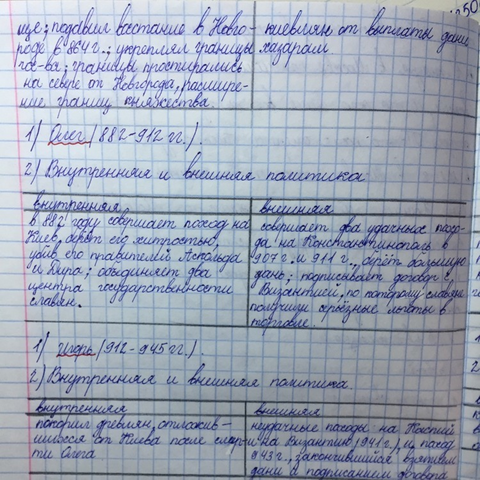 ще; подавил восстание в Новго-
роде в 864 г.; укреплял границы
гос-ва; границы простирались
на севере от Новгорода, расшире-
ние границ княжества.
киевлян от выплаты дани
хазарам
1) Олег (882-912 гг.).
2) Внутренняя и внешняя политика
внутренняя
в 882 году совершает поход на
Киев, берёт его хитростью,
убив его правителей Аскольда
и Дира; объединяет два
центра государственности
славян.
внешняя
совершает два удачных похо-
да на Константинополь в
907 г. и 911 г., берёт большую
дань; подписывает договор с
Византией, по которому славяне
получили серьёзные льготы в
торговле.
1) Игорь (912-945 гг.).
2) Внутренняя и внешняя политика.
внутренняя
покорил древлян, отложив-
шихся от Киева после смер-
ти Олега
внешняя
неудачные походы на
и на Византию (941 г.), и поход
943 г., закончившийся взятием
дани и подписанием договора